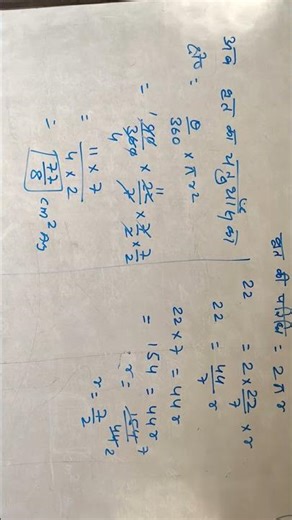 वृत्त की परिधि = 2πr
22 = 2 × 22/7 × r
22 = 44/7 r
22 × 7 = 44r
= 154 = 44r
r = 154/44 7/2
r = 7/2
अब वृत्त का चतुर्थांश का
क्षे० = θ/360 × πr²
= 90/360 4 × 22 11/7 × 7/2 × 7/2
= 11 × 7/4 × 2
= 77/8 cm² Ans